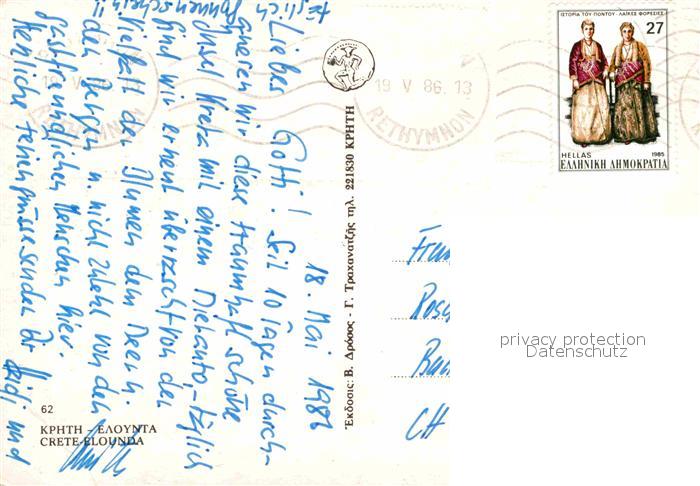 18. Mai 1986
Liebes Gotti! Seit 10 Tagen durch-
queren wir diese traumhaft schöne
Insel Kreta mit einem Mietauto, täglich
sind wir erneut überrascht von der
Vielfalt der Blumen dem Meer u.
den Bergen u. nicht zuletzt von den
gastfreundlichen Menschen hier.
Herzliche Feriengrüsse senden Dir Heidi und
täglich
Sonnenschein!!
19 V 86. 13
RETHYMNON
ΙΣΤΟΡΙΑ ΤΟΥ ΠΟΝΤΟΥ - ΛΑΪΚΕΣ ΦΟΡΕΣΙΕΣ
27
HELLAS 1985
ΕΛΛΗΝΙΚΗ ΔΗΜΟΚΡΑΤΙΑ
Ἐκδόσεις: Β. Δρόσος - Γ. Τραχανατζῆς τηλ. 221830 ΚΡΗΤΗ
CH
62
ΚΡΗΤΗ - ΕΛΟΥΝΤΑ
CRETE-ELOUNDA
privacy protection
Datenschutz